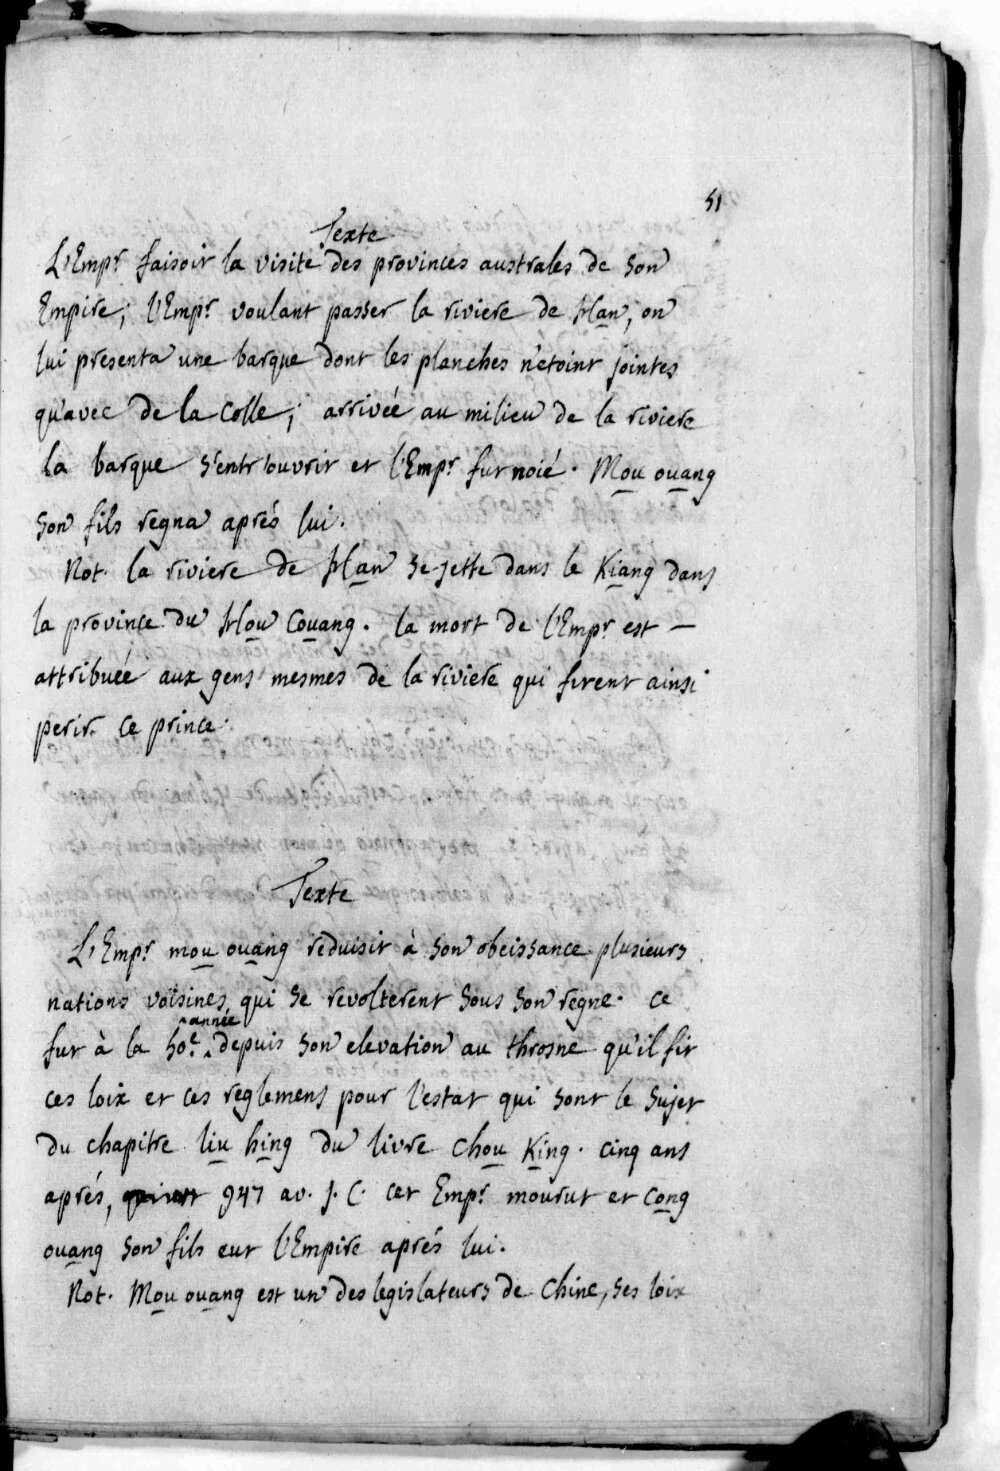 51
Texte
L'Emp.r faisoit la visite des provinces australes de son
Empire; l'Emp.r voulant passer la riviere de Han, on
lui presenta une barque dont les planches n'etoint jointes
qu'avec de la colle; arrivée au milieu de la riviere
la barque s'entr'ouvrit et l'Emp.r fut noié. Mou ouang
son fils regna aprés lui.
Not. la riviere de Han se jette dans le Kiang dans
la province du Hou Couang. la mort de l'Emp.r est —
attribuée aux gens mesmes de la riviere qui firent ainsi
perir ce prince.
Texte
L'Emp.r mou ouang reduisit à son obeissance plusieurs
nations voisines qui se revolterent sous son regne. ce
fut à la 50.e année depuis son elevation au throsne qu'il fit
ces loix et ces reglemens pour l'estat qui sont le sujet
du chapitre liu hing du livre chou King. cinq ans
aprés, 947 av. J. C. cet Emp.r mourut et Cong
ouang son fils eut l'Empire aprés lui.
Not. Mou ouang est un des legislateurs de Chine, ses loix